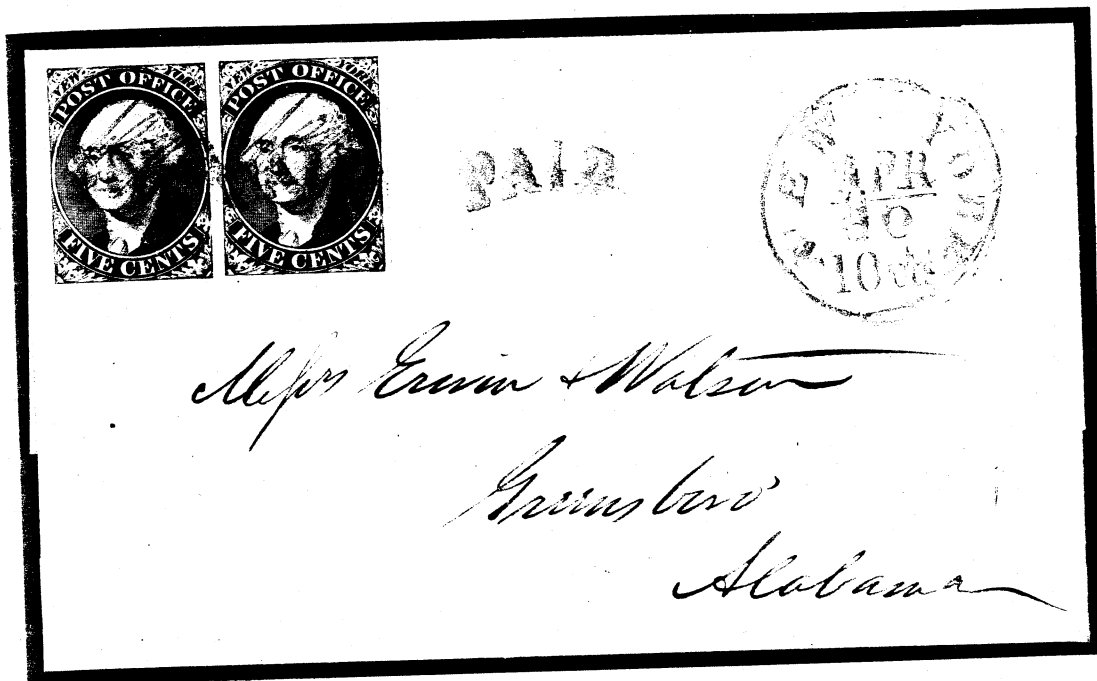 NEW YORK
POST OFFICE
FIVE CENTS
NEW YORK
POST OFFICE
FIVE CENTS
PAID
NEW YORK
APR
10 cts
Messrs Erwin & Watson
Greensboro'
Alabama